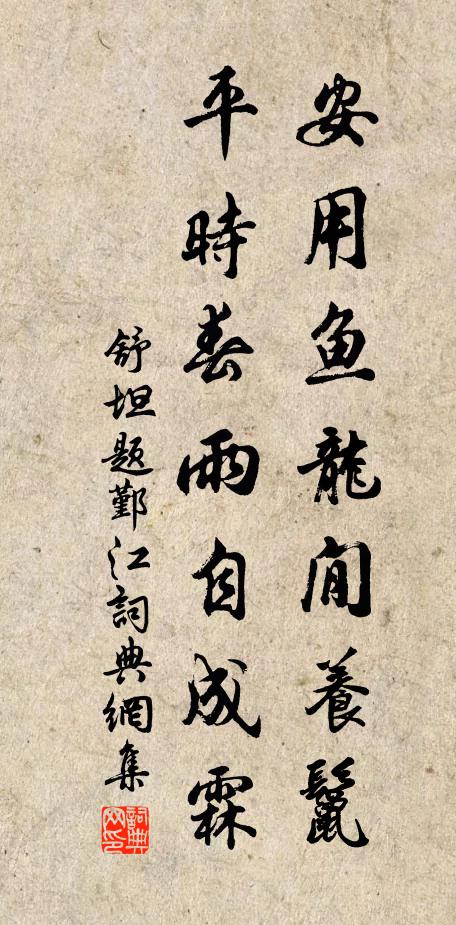 安用鱼龍閒養鬣
平時春雨自成霖
舒坦題鄞江詞典網集
詞典网印